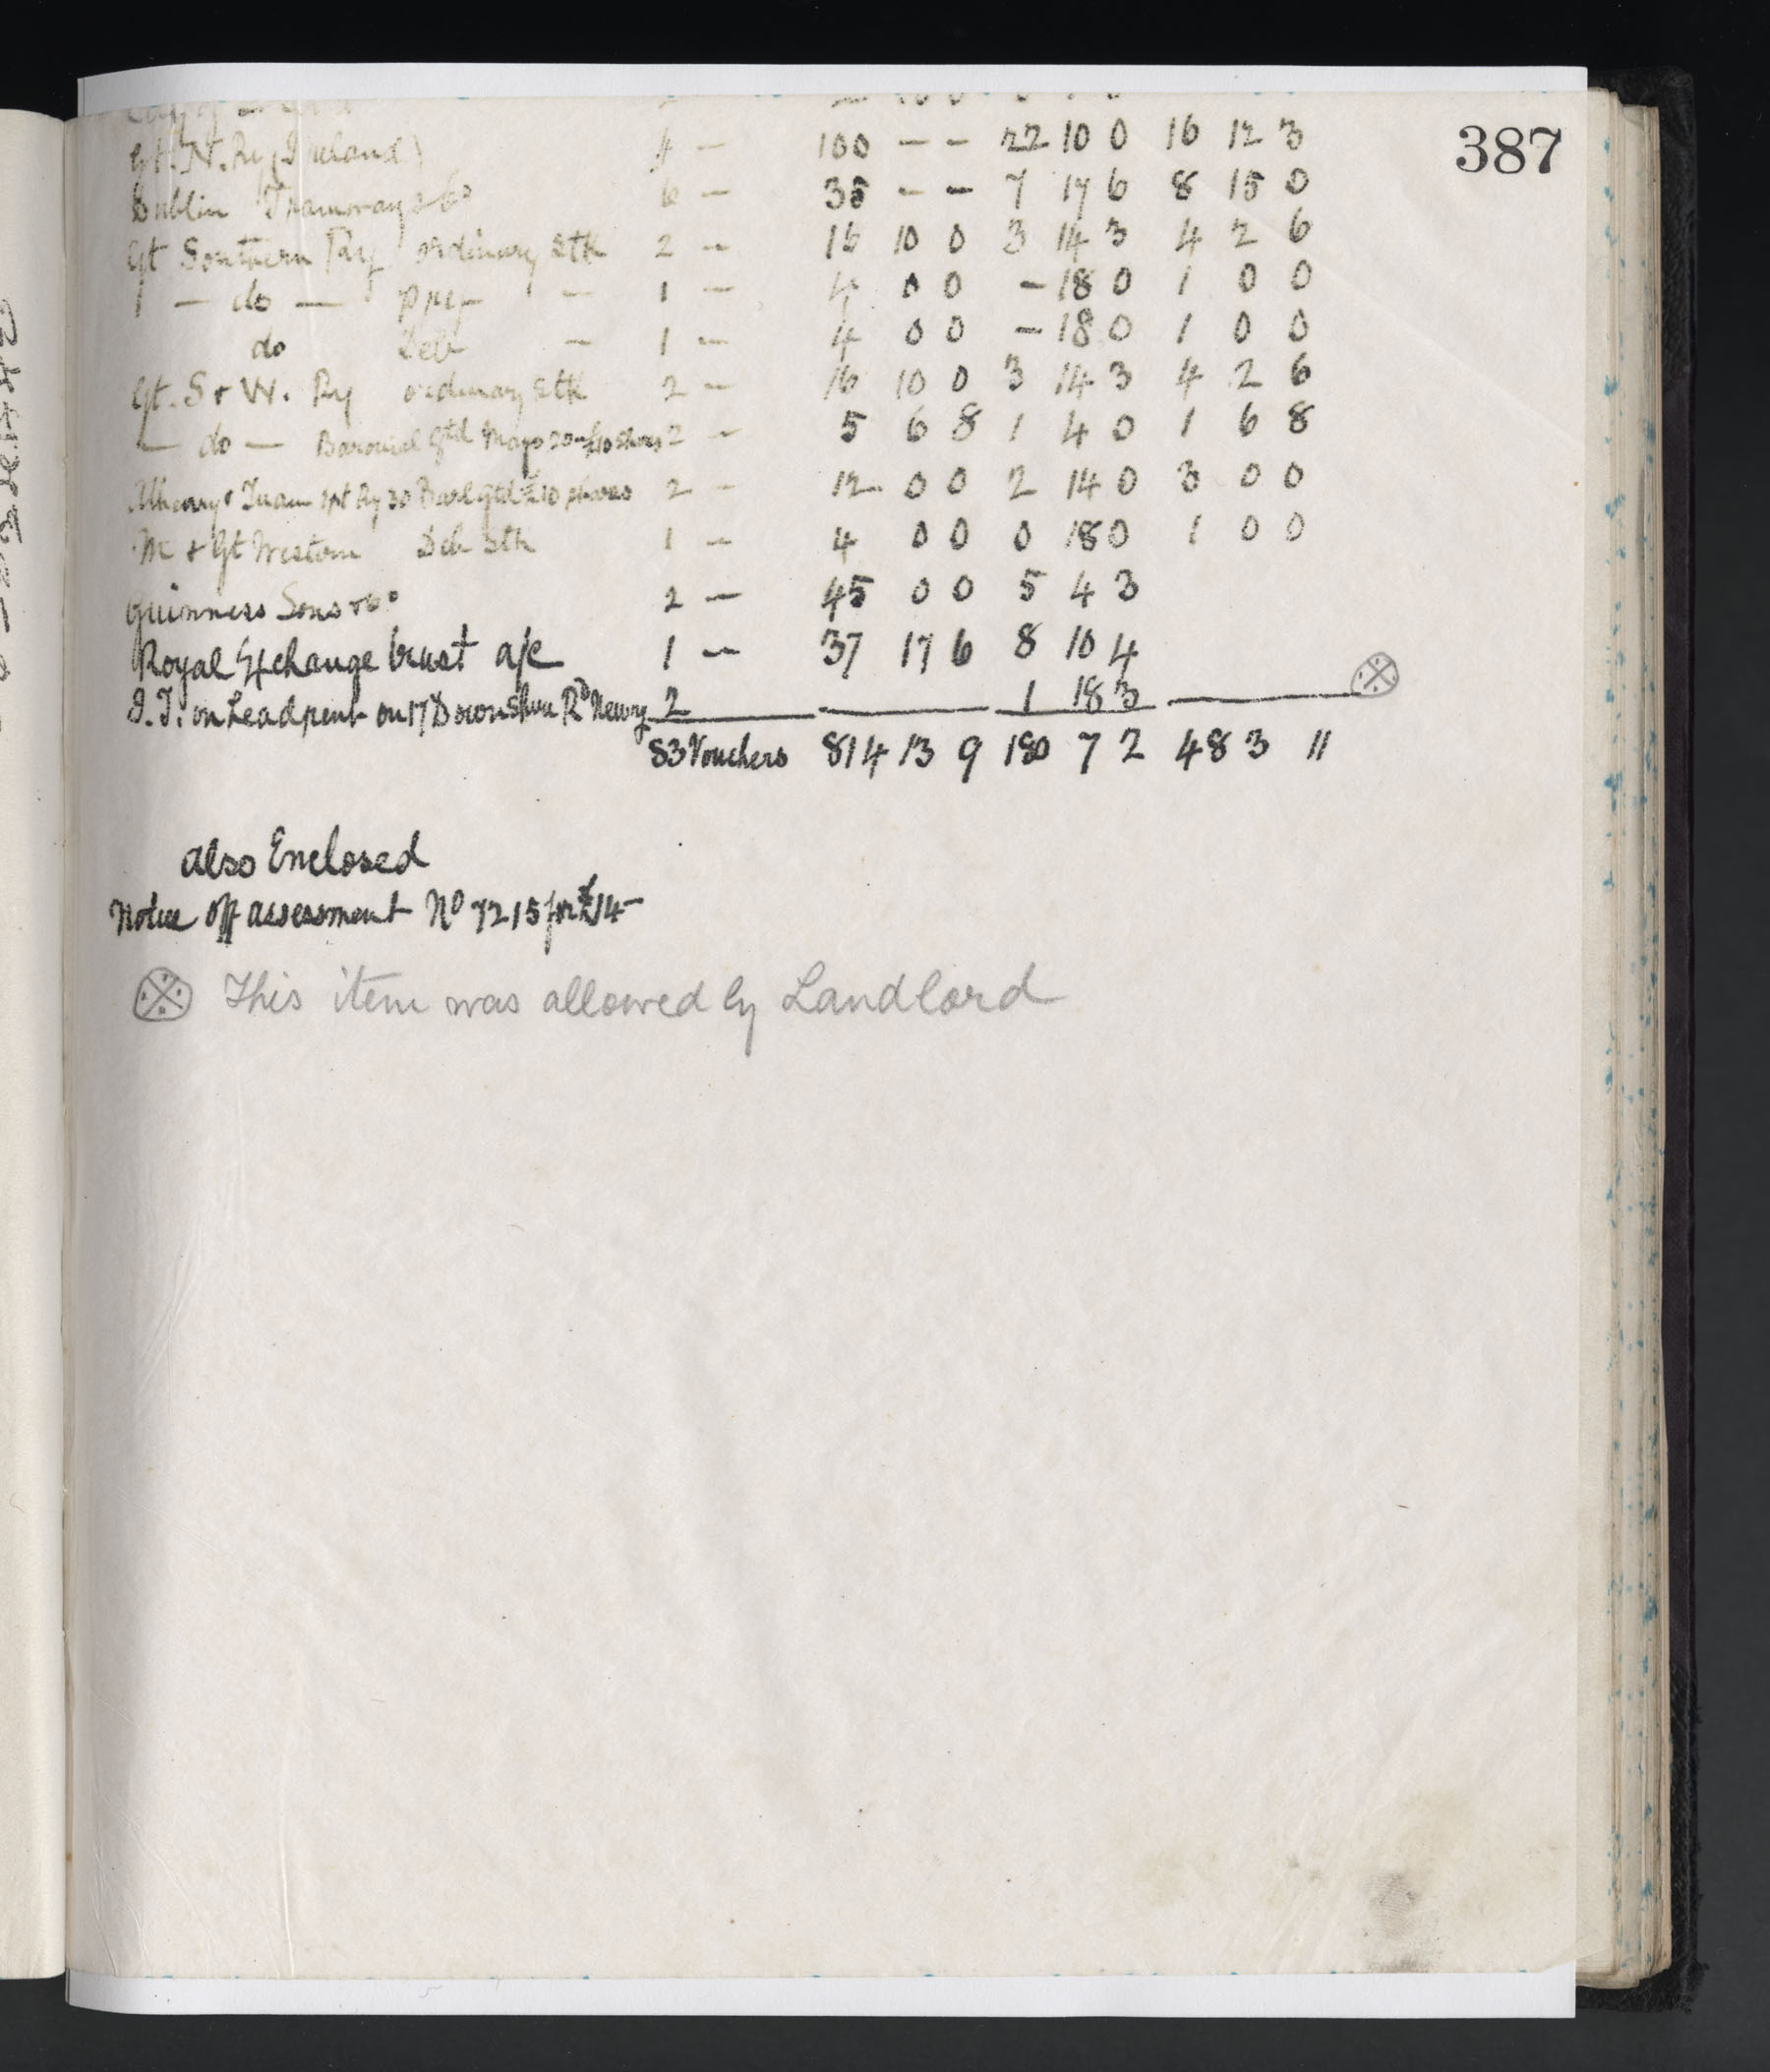 387
Gt. N. Ry (Ireland) 4 – 100 – – 22 10 0 16 12 3
Dublin Tramways Co 6 – 35 – – 7 17 6 8 15 0
Gt Southern Ry ordinary Stk 2 – 16 10 0 3 14 3 4 2 6
– do – pref – 1 – 4 0 0 – 18 0 1 0 0
do Deb – 1 – 4 0 0 – 18 0 1 0 0
Gt. S & W. Ry ordinary Stk 2 – 16 10 0 3 14 3 4 2 6
– do – Baronial Gtd Mayo 20 £10 shares 2 – 5 6 8 1 4 0 1 6 8
Tuam Ry 30 £10 shares 2 – 12 0 0 2 14 0 3 0 0
M & Gt Western Deb Stk 1 – 4 0 0 0 18 0 1 0 0
Guinness Sons & Co 2 – 45 0 0 5 4 3
Royal Exchange trust a/c 1 – 37 17 6 8 10 4
I. T. on Head rent on 17 Downshire Rd Newry 2 1 18 3
83 Vouchers 814 13 9 180 7 2 48 3 11
Also Enclosed
Notice off assessment No 7215 for £14 –
This item was allowed by Landlord